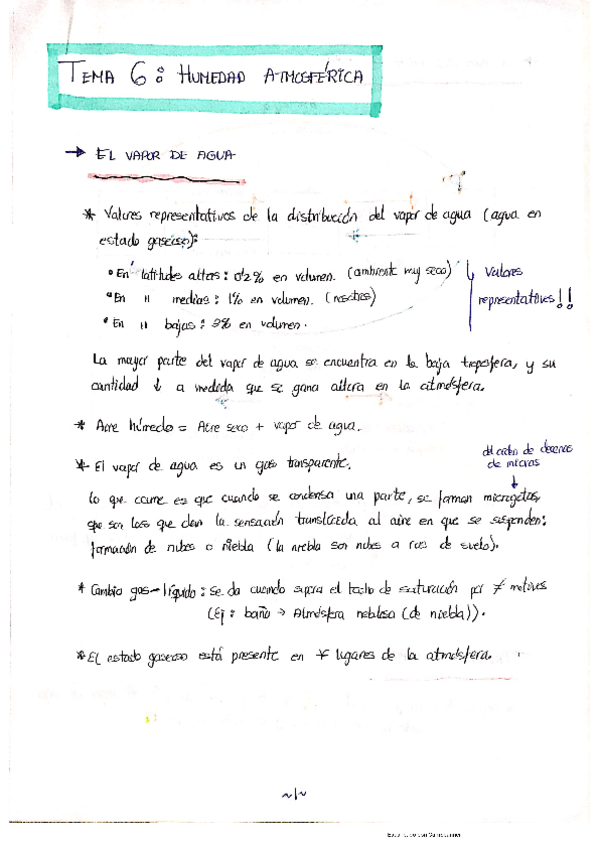 TEMA 6: HUMEDAD ATMOSFÉRICA
→ EL VAPOR DE AGUA
* Valores representativos de la distribución del vapor de agua (agua en
estado gaseoso):
• En latitudes altas: 0'2% en volumen. (ambiente muy seco)
• En " medias: 1% en volumen. (nosotros)
• En " bajas: 3% en volumen.
Valores
representativos!!
La mayor parte del vapor de agua se encuentra en la baja troposfera, y su
cantidad ↓ a medida que se gana altura en la atmósfera.
* Aire húmedo = Aire seco + vapor de agua.
* El vapor de agua es un gas transparente.
del orden de decenas
de micras
↓
Lo que ocurre es que cuando se condensa una parte, se forman microgotas,
que son las que dan la sensación translúcida al aire en que se suspenden:
formación de nubes o niebla (la niebla son nubes a ras de suelo).
* Cambio gas-líquido: se da cuando supera el techo de saturación por ≠ motivos
(Ej: baño → Atmósfera neblosa (de niebla)).
* El estado gaseoso está presente en ≠ lugares de la atmósfera.
~1~